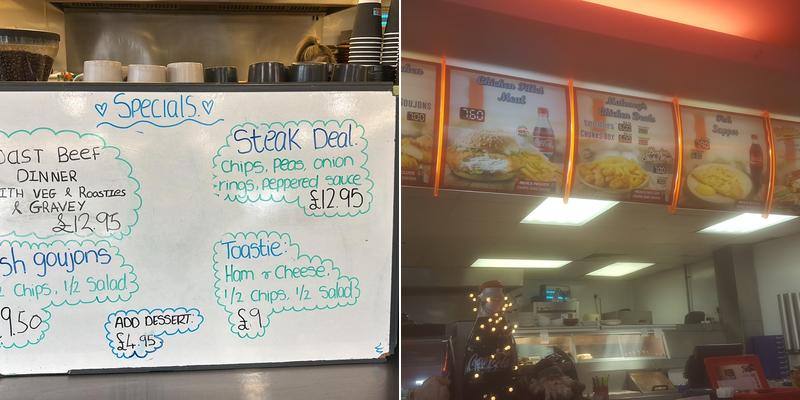 Specials.
OAST BEEF
DINNER
ITH VEG & ROASTIES
& GRAVEY
£12.95
Steak Deal.
Chips, Peas, onion
rings, peppered sauce
£12.95
sh goujons
Chips, 1/2 Salad
9.50
Toastie:
Ham & Cheese.
1/2 Chips, 1/2 Salad
£9
ADD DESSERT:
£4.95
GOUJONS
Chicken Fillet
Meal
7.60
Chicken Deals
Fish
Supper
Coca-Cola